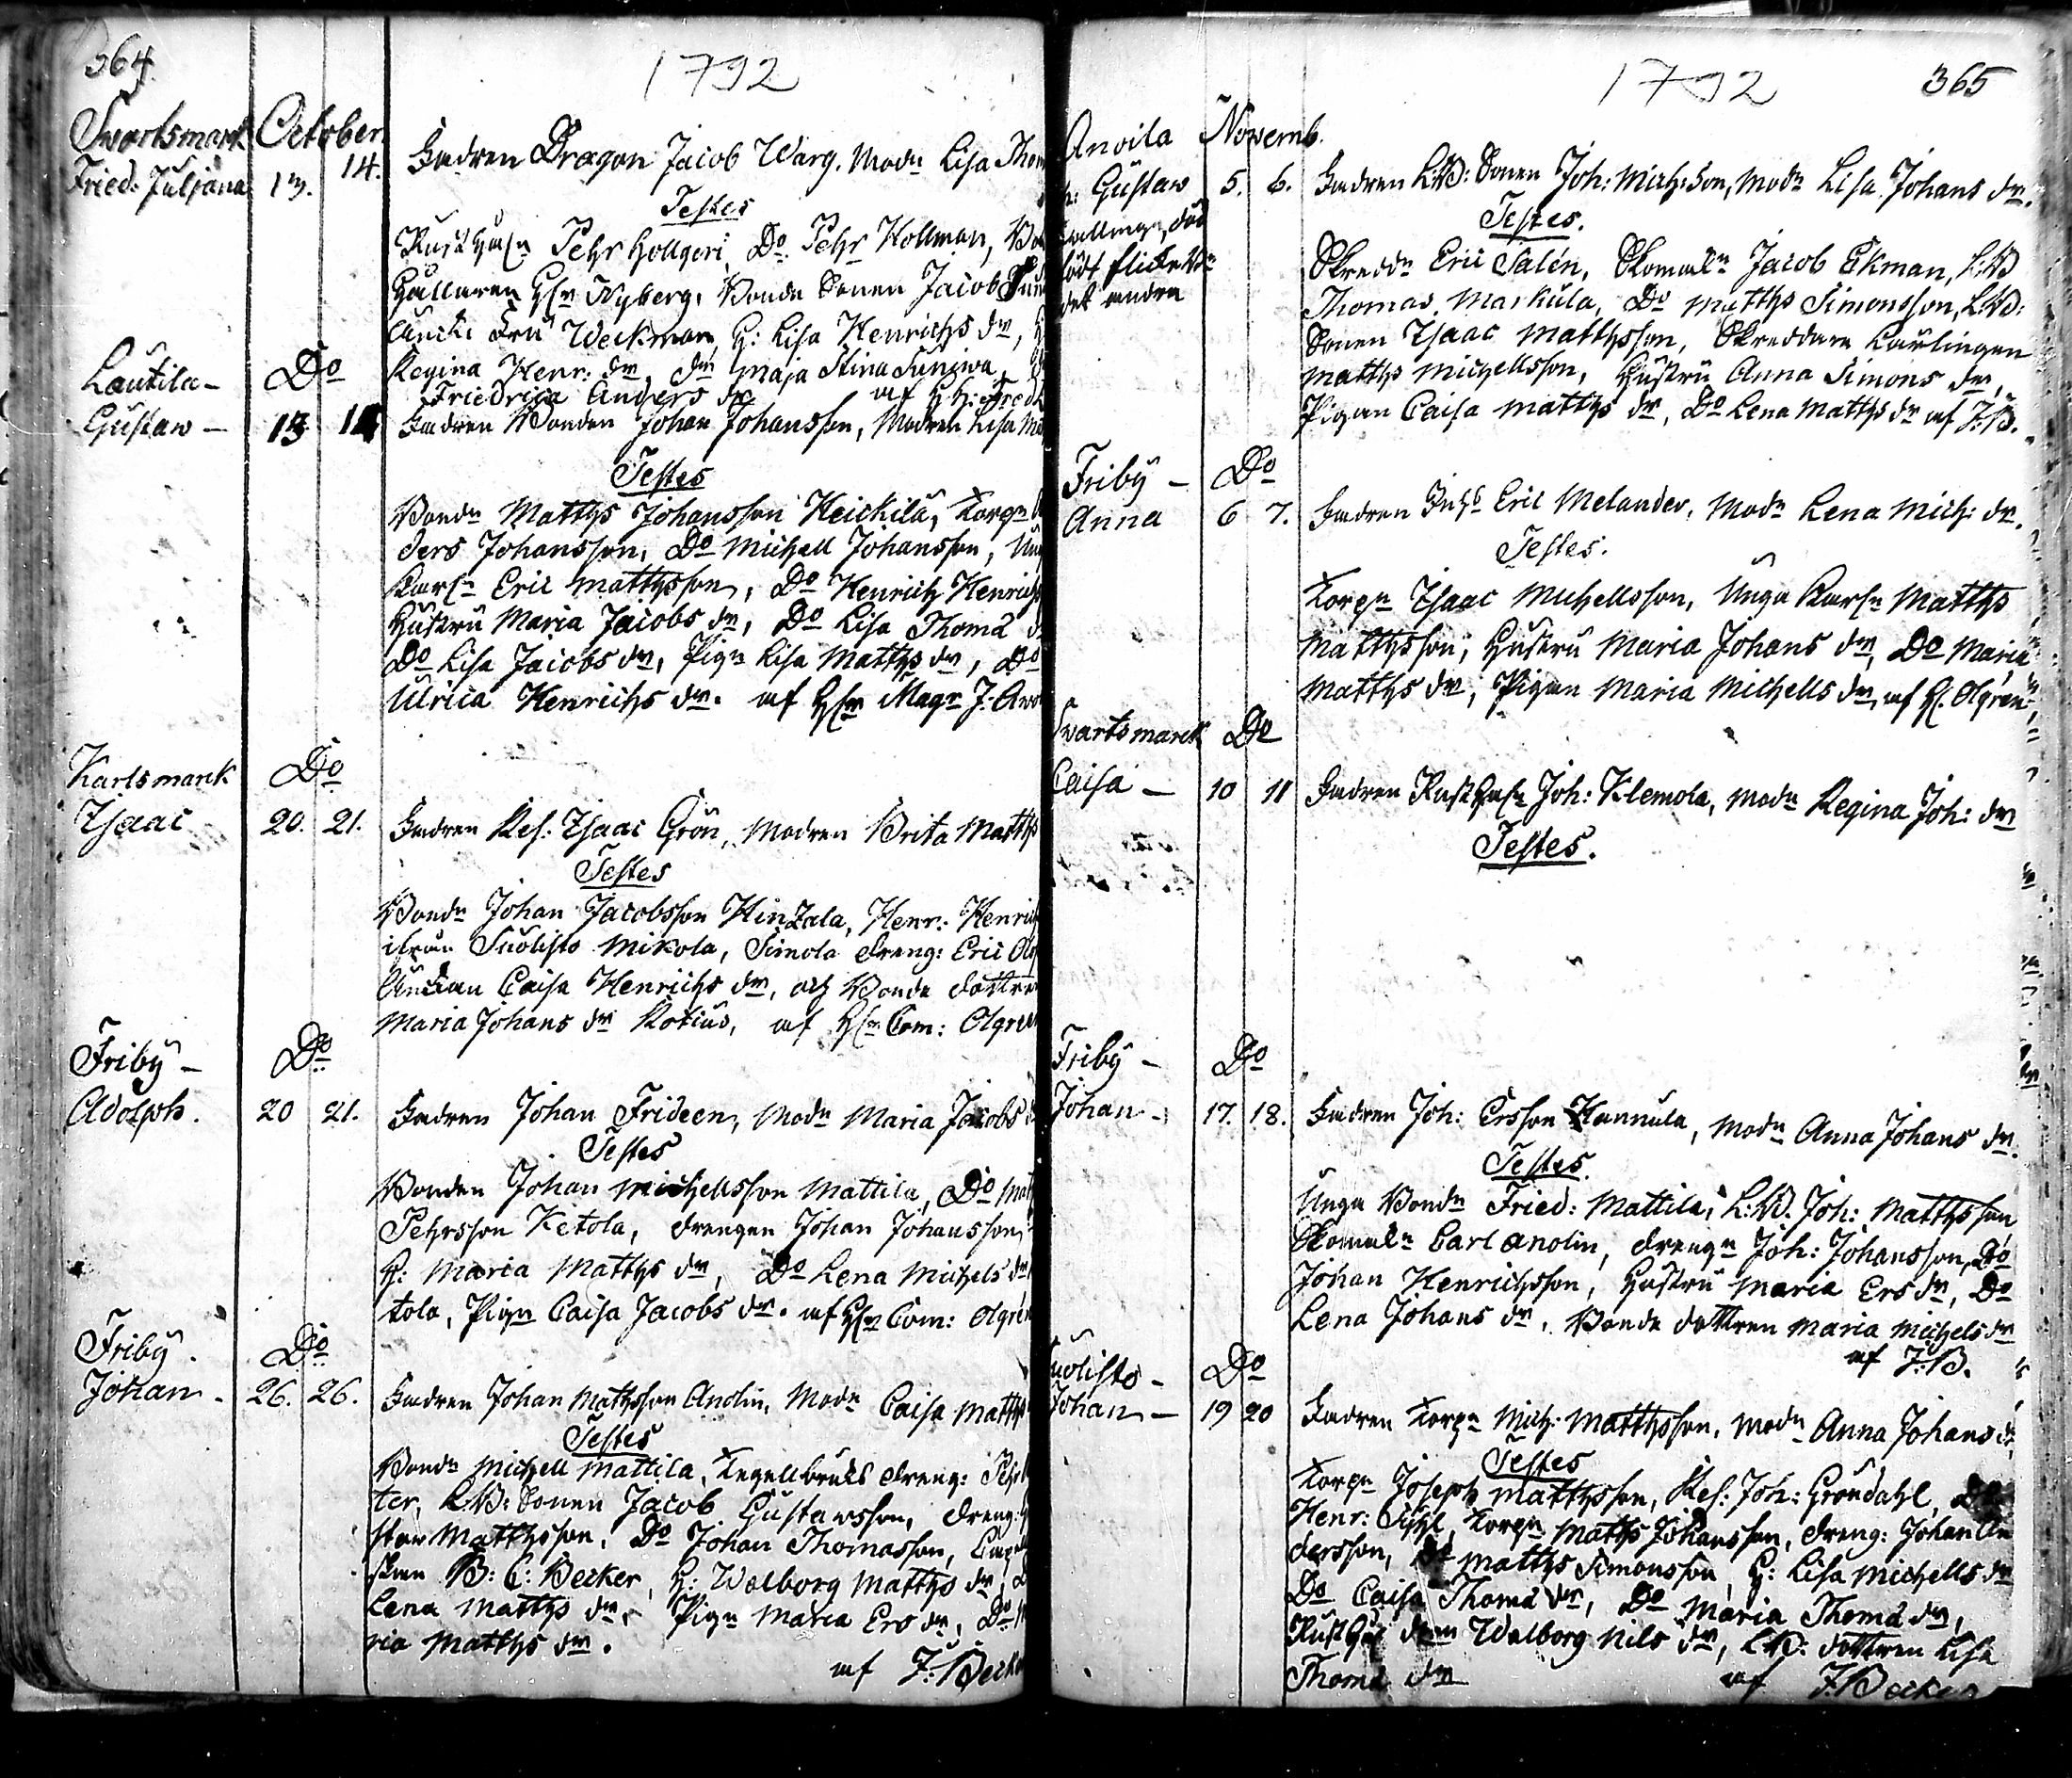 364
1792
Swartsmark October
Fried: Juljana 13. 14. Fadren Dragon Jacob Warg. Modn Lisa Thom
Testes
Rusthn Pehr Hollgeri, Do Pehr Hollman,
Hållaren Hr Nyberg, Bonde Sonen Jacob
Fru Weckman, H: Lisa Henrichs dr,
Regina Henr: dr, Maja Stina
Friedrica Anders dr af
Lautila - Do
Gustaw - 13 14 Fadren Bonden Johan Johansson, Modren Lisa
Testes
Bondn Matths Johansson Heickilä, Torpn
ders Johansson, Do Michell Johansson, Un
Karln Eric Matthsson, Do Henrich Henrichs
Hustru Maria Jacobs dr, Do Lisa Thoma
Do Lisa Jacobs dr, Pign Lisa Matths dr, Do
Ulrica Henrichs dr. af Hr Magr J.
Karlsmark Do
Isaac 20. 21. Fadren Res. Isaac Grön, Modren Brita Matths
Testes
Bondn Johan Jacobsson Hinzala, Henr: Henrich
ifrån Suolisto Mikola, Simola dräng: Eric
Änckan Caisa Henrichs dr, och Bonde dottren
Maria Johans dr Kotius, af Hr Com: Olgreen
Friby - Do
Adolph. 20 21. Fadren Johan Frideen, Modn Maria Jacobs
Testes
Bonden Johan Michellsson Mattila, Do Mat
Pehrsson Ketola, drengen Johan Johansson,
H: Maria Matths dr, Do Lena Michels dr
tola, Pign Caisa Jacobs dr. af Hr Com: Olgrén
Friby. Do
Johan - 26. 26. Fadren Johan Mathsson Anolin, Modn Caisa Matths
Testes
Bondn Michell Mattila, Tegelbruks dreng: Pehr
ter, LB: Sonen Jacob Gustawsson, dreng:
staw Matthsson, Do Johan Thomasson,
skan B: C: Becker, H: Walborg Matths dr,
Lena Matths dr, Pign Maria Ers dr, Do
ria Matths dr.
af J: Beck
1792 365
Anoila Novemb.
Gustaw 5. 6. Fadren LB: Sonen Joh: Mich:son, Modn Lisa Johans dr.
Testes.
Skreddn Eric Salén, Skomakn Jacob Ekman, LB
Thomas Markula, Do Matths Simonsson, LB:
Sonen Isaac Matthsson, Skreddare Lärlingen
Matths Michellsson, Hustru Anna Simons dr,
Pigan Caisa Matths dr, Do Lena Matths dr af J:B.
Friby - Do
Anna 6 7. Fadren Inhs Eric Melander, Modn Lena Mich: dr.
Testes.
Torpn Isaac Michellsson, Unga Karln Matths
Matthsson, Hustru Maria Johans dr, Do Maria
Matths dr, Pigan Maria Michells dr, af H. Olgrén
Swartsmark Do
Caisa - 10 11 Fadren Rusthn Joh: Klemola, Modn Regina Joh: dr
Testes.
Friby - Do
Johan - 17. 18. Fadren Joh: Ersson Hannula, Modn Anna Johans dr.
Testes.
Unga Bondn Fried: Mattila, L:B. Joh: Matthsson
Skomakn Carl Anolin, drengn Joh: Johansson, Do
Johan Henrichsson, Hustru Maria Ers dr, Do
Lena Johans dr, Bonde dottren Maria Michels dr
af J:B.
uolisto - Do
Johan - 19 20 Fadren Torpn Mich: Matthsson, Modn Anna Johans dr
Testes
Torpn Joseph Matthsson, Res: Joh: Gröndahl, Do
Henr: Torpn Matths Johansson, dreng: Johan An
dersson, Do Matths Simonsson, H: Lisa Michells dr
Do Caisa Thoma dr, Do Maria Thoma dr,
Rusth Walborg Nils dr, LB: dottren Lisa
Thoma dr af J: Becker